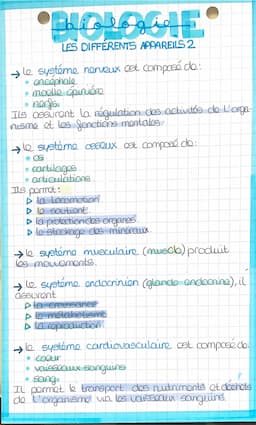 BIOLOGIE
biologie
LES DIFFÉRENTS APPAREILS 2
→ le système nerveux est composé de:
• encéphale
• moelle épinière
• nerfs.
Ils assurent la régulation des activités de l'orga-
nisme et les fonctions mentales.
→ le système osseux est composé de:
• os
• cartilages
• articulations
Ils permet:
▷ la locomotion
▷ le soutient
▷ la protection des organes
▷ le stockage des minéraux
→ le système musculaire (muscle) produit
les mouvements.
→ le système endocrinien (glande endocrine), il
assurent
▷ la croissance
▷ le métabolisme
▷ la reproduction
→ le système cardiovasculaire est composé de:
• cœur
• vaisseaux sanguins
• sang.
Il permet le transport des nutriments et déchets
de l'organisme via les vaisseaux sanguins.